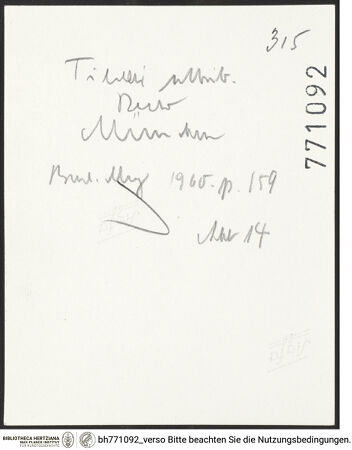 315
771092
Tibaldi attrib.
Recto
München
Burl. Mag 1960. p. 159
Abb 14
BIBLIOTHECA HERTZIANA
MAX-PLANCK-INSTITUT
FÜR KUNSTGESCHICHTE
bh771092_verso Bitte beachten Sie die Nutzungsbedingungen.